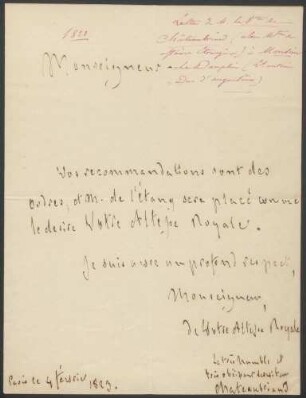 1823
Lettre de M. le Vte de
Châteaubriand, alors Mtre des
affaires Étrangères, à Monsieur
le Dauphin,
Duc d'angoulême)
Monseigneur
Vos recommandations sont des
ordres, et M. de l'étang sera placé comme
le desire Votre Altesse Royale.
Je suis avec un profond respect,
Monseigneur,
de Votre Altesse Royale
Le très humble et
très obéissant serviteur
Chateaubriand
Paris ce 4 février 1823.